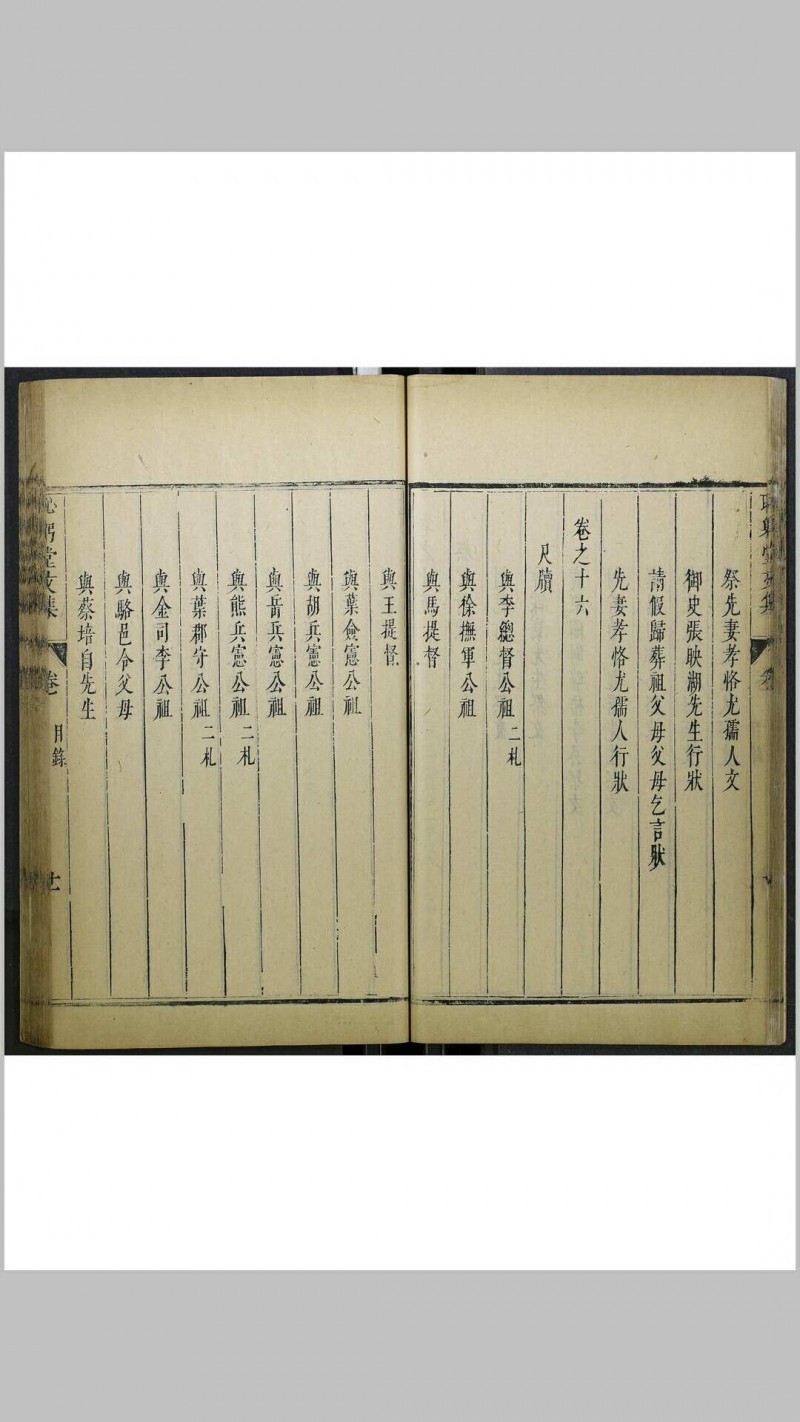 祭先妻孝恪尤孺人文
御史張映湖先生行狀
請假歸葬祖父母父母乞言狀
先妻孝恪尤孺人行狀
卷之十六
尺牘
與李總督公祖二札
與徐撫軍公祖
與馬提督
與王提督
與葉僉憲公祖
與胡兵憲公祖
與岳兵憲公祖
與熊兵憲公祖二札
與葉郡守公祖二札
與金司李公祖
與駱邑令父母
與蔡培自先生
恥躬堂文集 卷 目錄